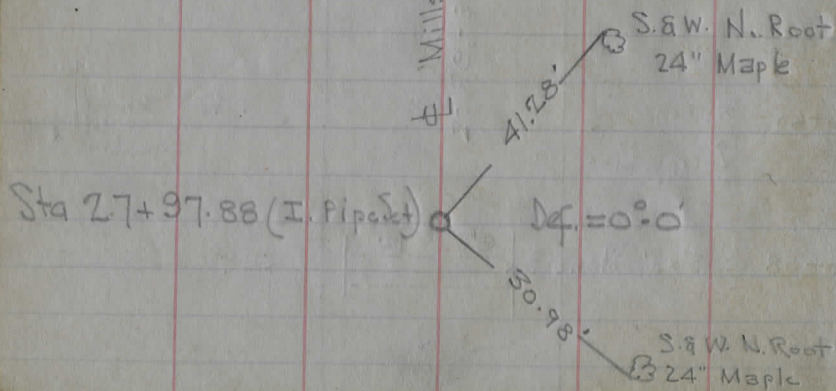 S. & W. N. Root
24" Maple
Mill
41.28'
Sta 27+97.88 (I. Pipe Set)
Def. = 0°-0'
30.98'
S. & W. N. Root
24" Maple